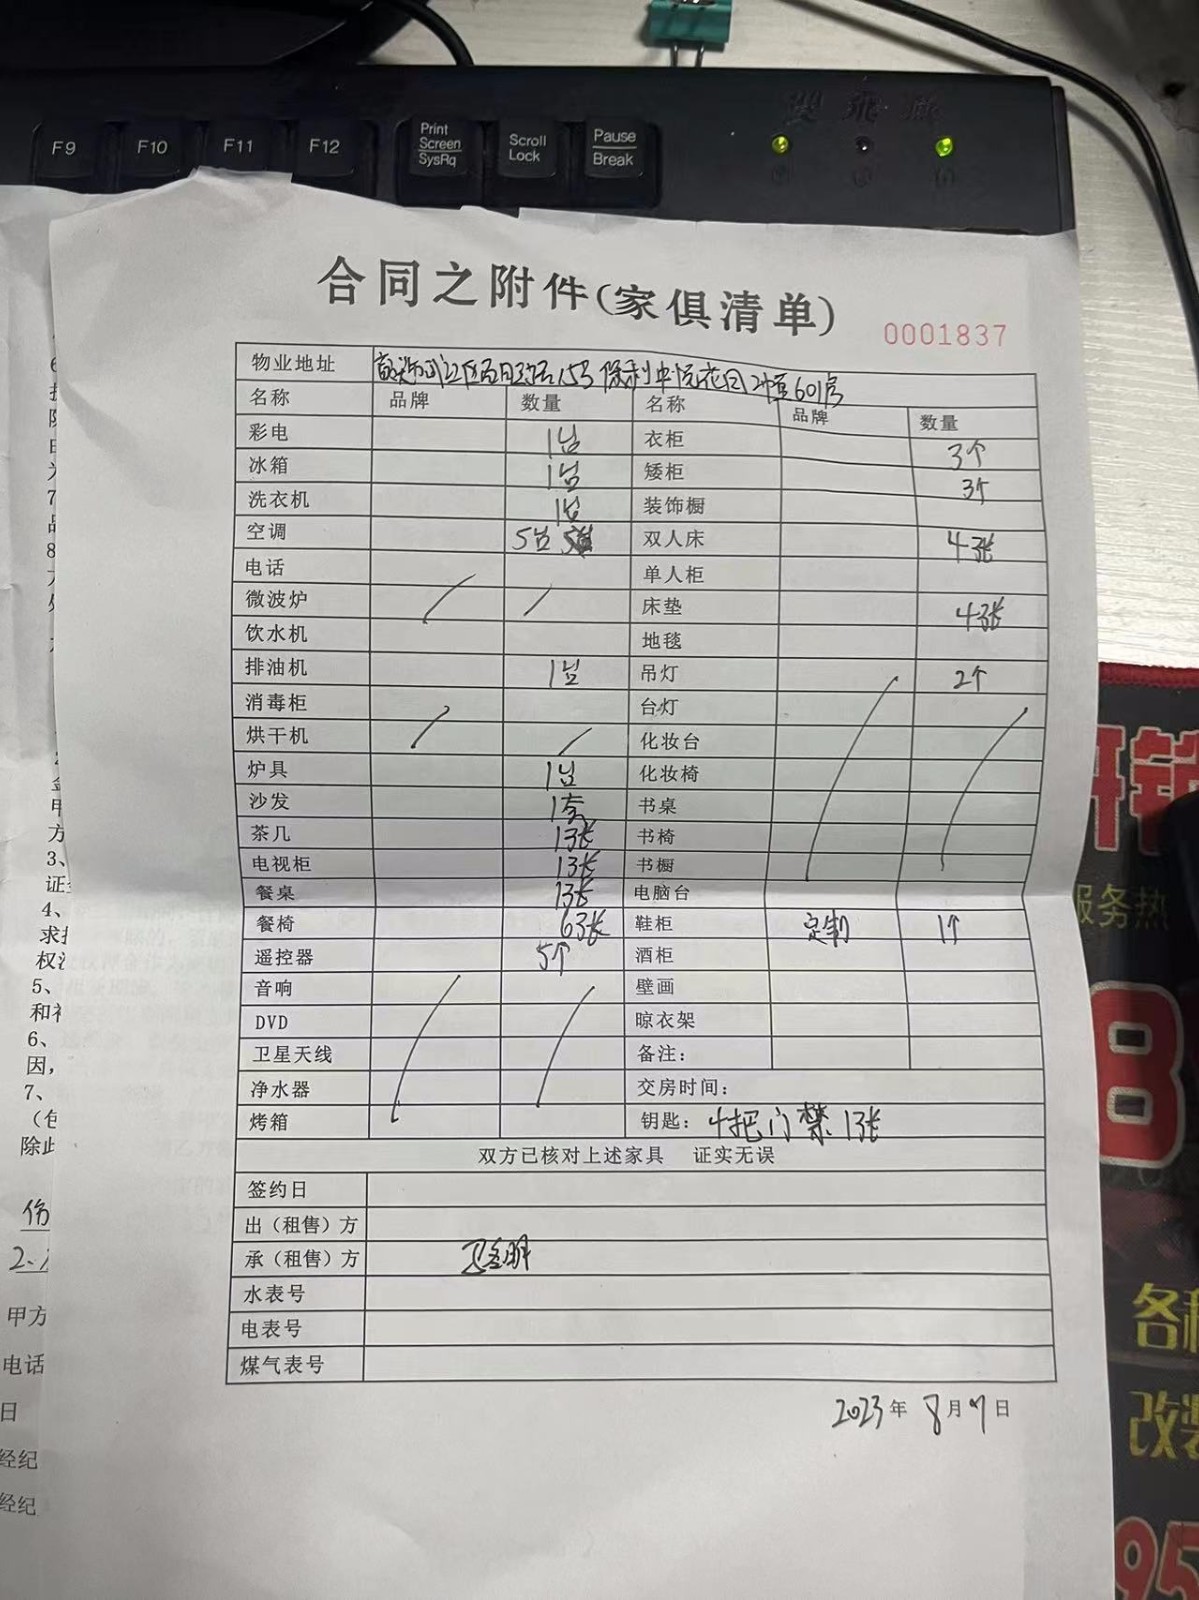 F9 F10 F11 F12 Print Screen SysRq Scroll Lock Pause Break
合同之附件(家俱清单)
0001837
物业地址 保利中悦花园2幢601房
名称 品牌 数量 名称 品牌 数量
彩电 1台 衣柜 3个
冰箱 1台 矮柜 3个
洗衣机 1台 装饰橱
空调 5台 双人床 4张
电话 单人柜
微波炉 床垫 4张
饮水机 地毯
排油机 1台 吊灯 2个
消毒柜 台灯
烘干机 化妆台
炉具 1台 化妆椅
沙发 1套 书桌
茶几 1张 书椅
电视柜 1张 书橱
餐桌 1张 电脑台
餐椅 6张 鞋柜 定制 1个
遥控器 5个 酒柜
音响 壁画
DVD 晾衣架
卫星天线 备注：
净水器 交房时间：
烤箱 钥匙：4把门禁1张
双方已核对上述家具 证实无误
签约日
出（租售）方
承（租售）方
水表号
电表号
煤气表号
2023年8月9日
3、
证
4、
求
权
5、
和
6、
因，
7、
（包
除此
份
甲方
电话
日
经纪
经纪
服务热
8
各种
改装
95